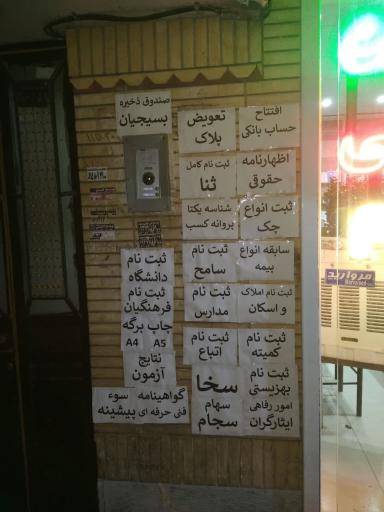 صندوق ذخیره
بسیجیان
تعویض
پلاک
افتتاح
حساب بانکی
ثبت نام کامل
ثنا
اظهارنامه
حقوقی
شناسه یکتا
پروانه کسب
ثبت انواع
چک
ثبت نام
سامح
سابقه انواع
بیمه
ثبت نام
دانشگاه
ثبت نام
فرهنگیان
چاپ برگه
A4 A5
نتایج
آزمون
ثبت نام
مدارس
ثبت نام املاک
و اسکان
ثبت نام
اتباع
ثبت نام
کمیته
سخا
ثبت نام
بهزیستی
سهام
سجام
امور رفاهی
ایثارگران
گواهینامه
فنی حرفه ای
سوء
پیشینه
مروارید